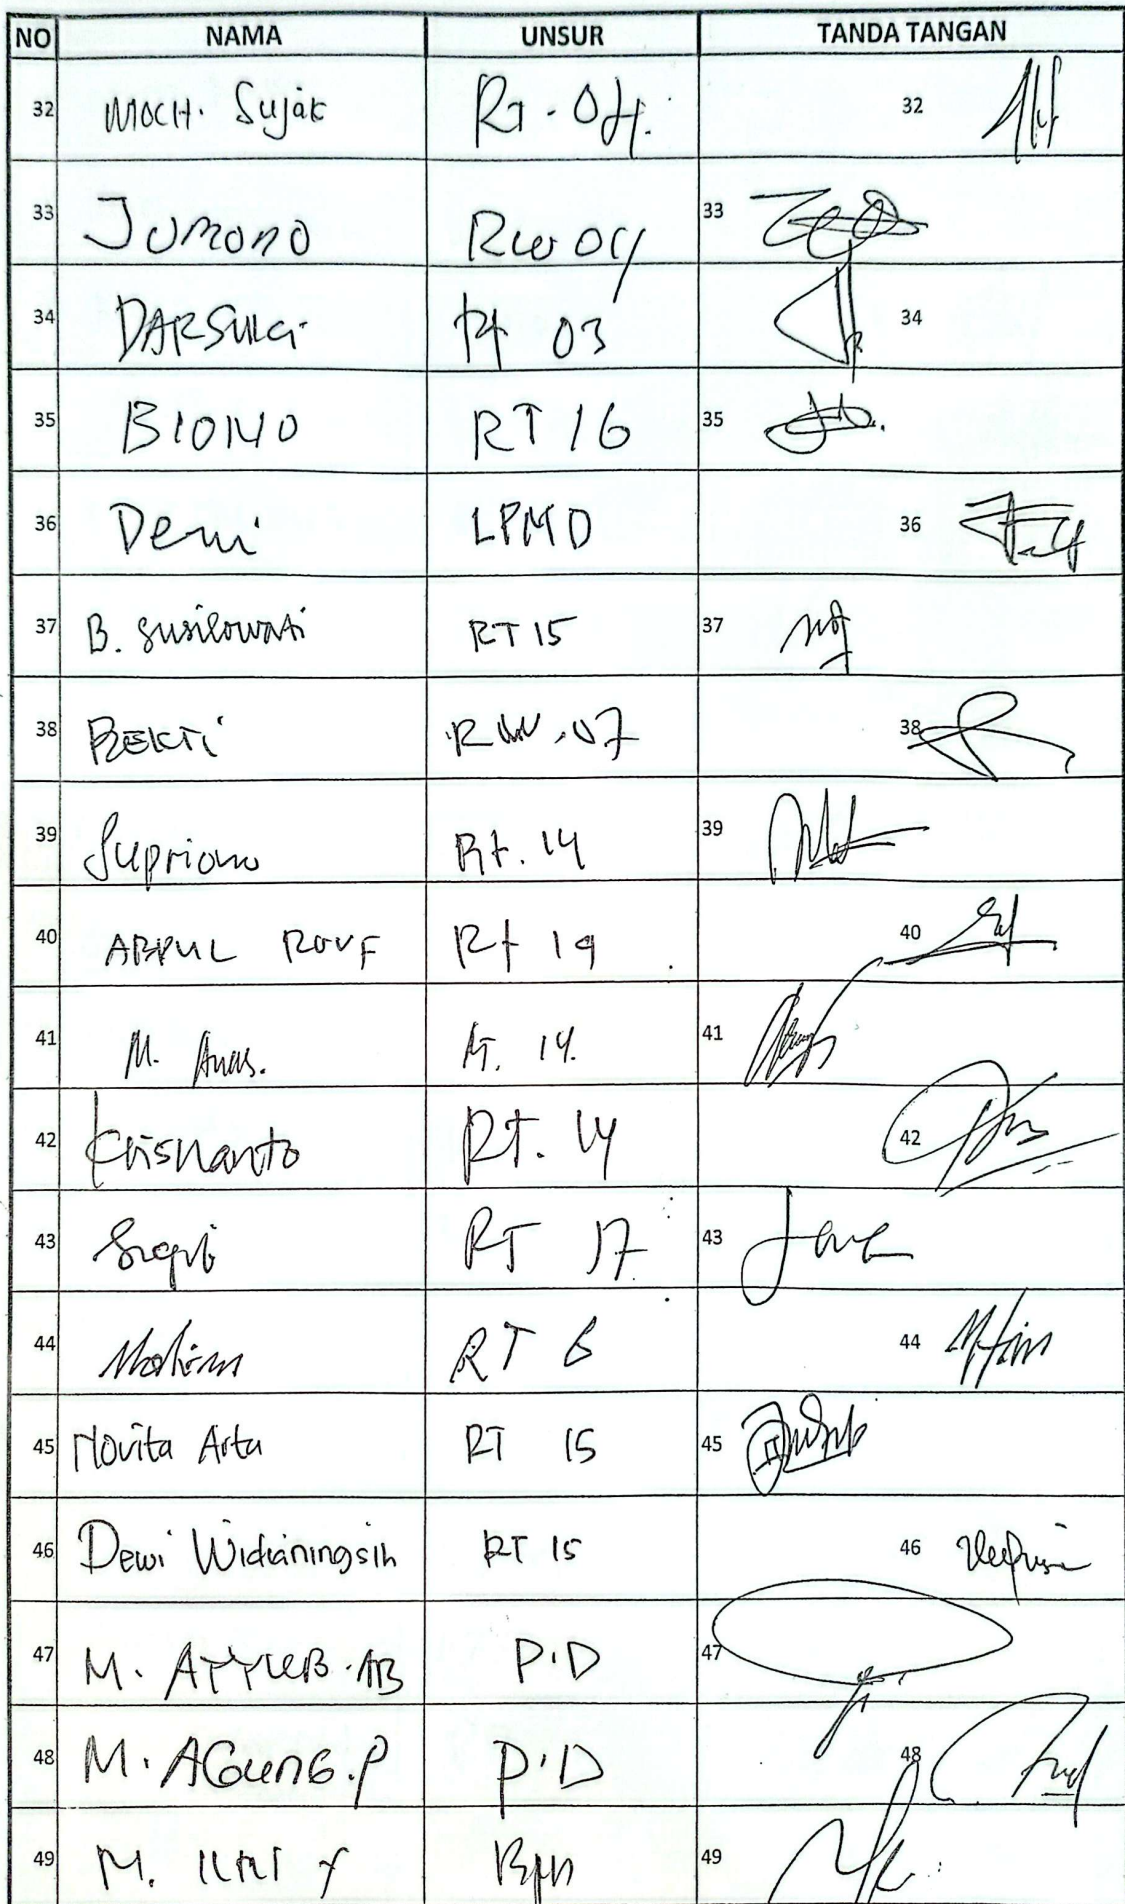 NO NAMA UNSUR TANDA TANGAN
32 MOCH. Sujak RT. 04. 32
33 JUMONO RW 04 33
34 DARSUKI Rt 03 34
35 BIONO RT 16 35
36 Demi LPMD 36
37 B. Susilowati RT 15 37
38 BEKTI RW. 07 38
39 Supriono Rt. 14 39
40 ABDUL ROUF Rt 19 40
41 M. Anas. RT. 14. 41
42 Krisnanto RT. 14 42
43 RT 17 43
44 RT 6 44
45 Novita Arta RT 15 45
46 Dewi Widianingsih RT 15 46
47 M. AYYUB. AB P.D 47
48 M. AGUNG. P P.D 48
49 M. 49